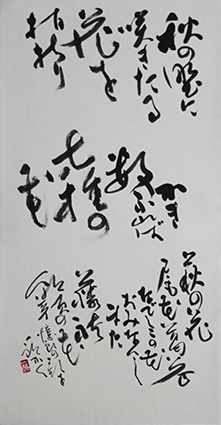 秋の野に
咲きたる
花を
指折り
かき
数ふれば
七種の
花
萩の花
尾花葛花
なでしこの花
をみなへし
また
藤袴
朝貌の花